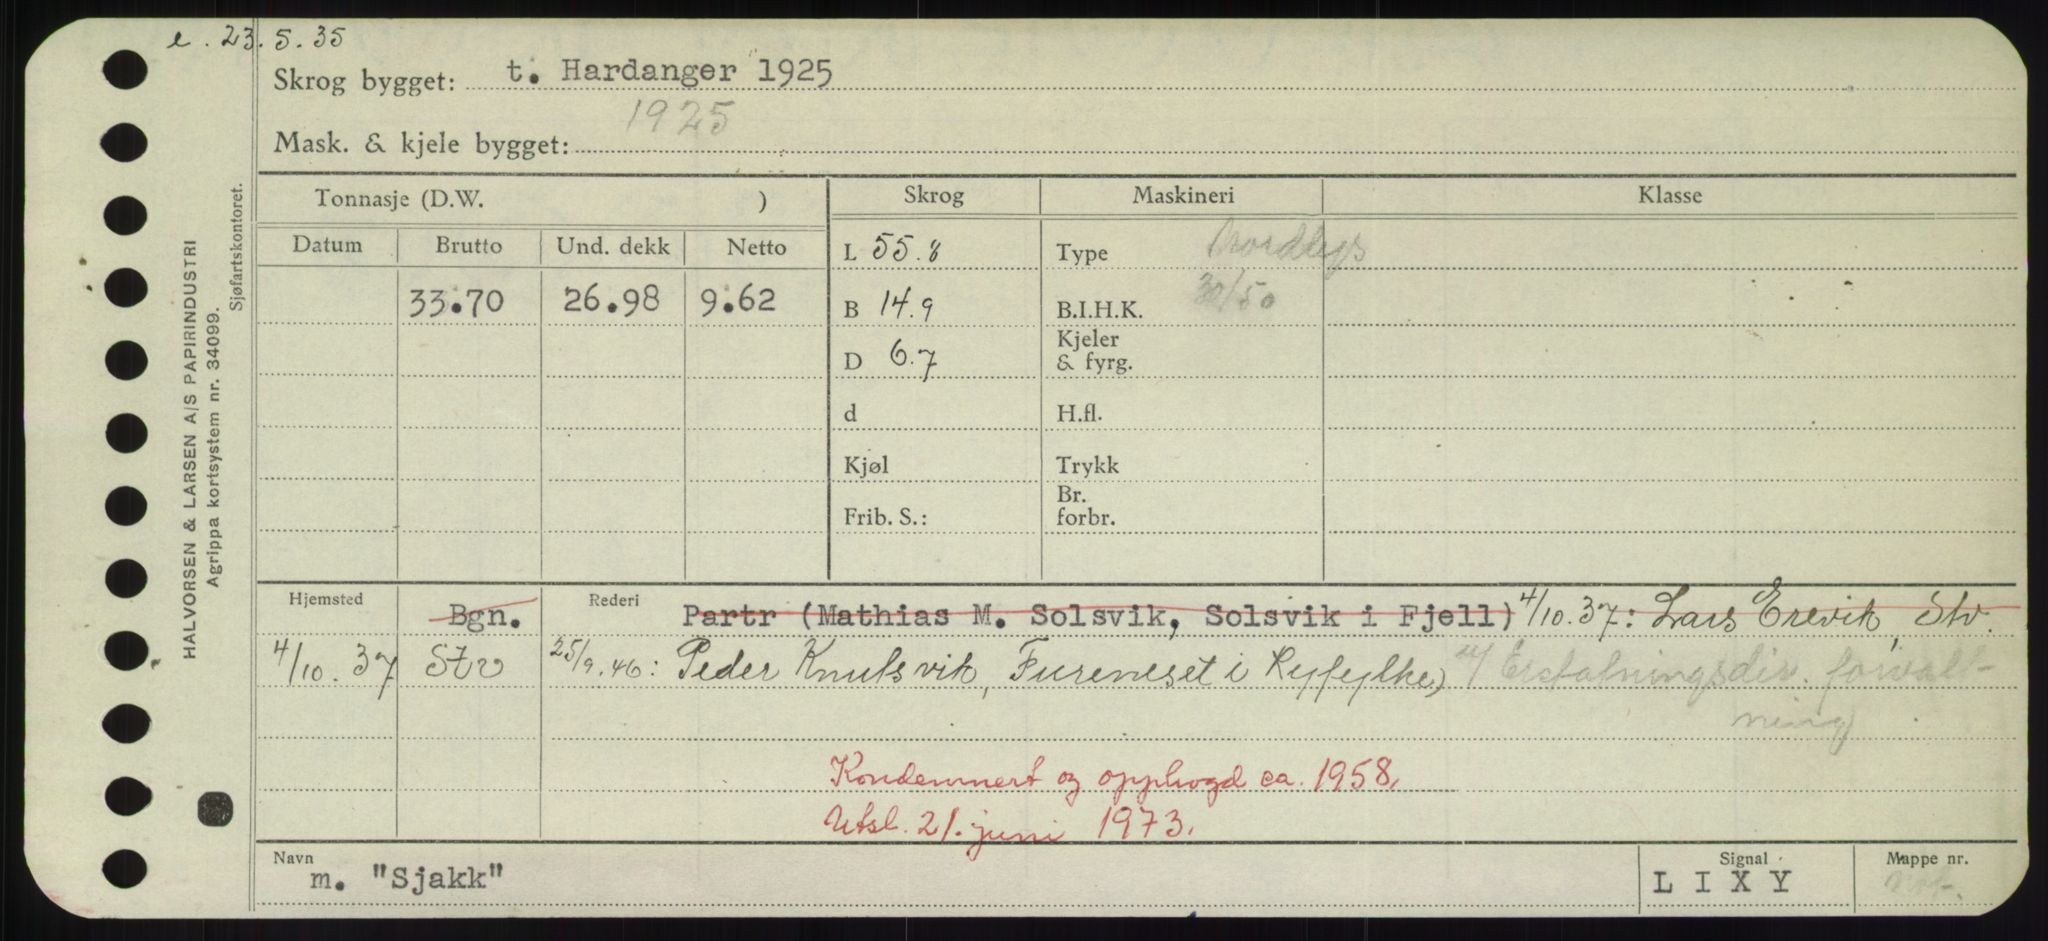 e. 23.5.35
Skrog bygget: t. Hardanger 1925
1925
Mask. & kjele bygget:
HALVORSEN & LARSEN A/S PAPIRINDUSTRI
Agrippa kortsystem nr. 34099.
Sjøfartskontoret.
Tonnasje (D.W. ) Skrog Maskineri Klasse
Datum Brutto Und. dekk Netto L 55.8 Type
33.70 26.98 9.62 B 14.9 B.I.H.K. 30/50
D 6.7 Kjeler & fyrg.
d H.fl.
Kjøl Trykk
Frib. S.: Br. forbr.
Hjemsted Bgn. Rederi Partr (Mathias M. Solsvik, Solsvik i Fjell) 4/10.37: Lars Erevik, Stv.
4/10.37 Stv 25/9.46: Peder Knutsvik, Fureneset i Ryfylke) Erstatningsdir. forvalt-
ning
Kondemnert og opphogd ca. 1958.
Utsl. 21. juni 1973.
Navn m. "Sjakk" Signal L I X Y Mappe nr.